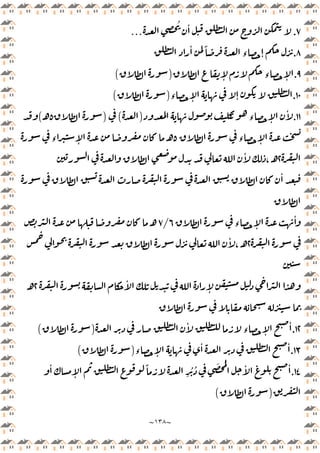 ٧. لا يتمكن الزوج من الطلاق قبل أن يحصي العدة...
٨. نزل حكم إحصاء العدة فرضا لمن أراد الطلاق
٩. الإحصاء حكم لازم لإيقاع الطلاق (سورة الطلاق)
١٠. الطلاق لا يكون إلا في نهاية الإحصاء (سورة الطلاق)
١١. لأن الإحصاء هو تكليف بوصول نهاية المعدود (العدة) في (سورة الطلاق ٥هـ) وقد
نسخت عدة الإحصاء في سورة الطلاق ٥هـ ما كان مفروضا من عدة الإستبراء في سورة
البقرة ٢هـ، ذلك لأن الله تعالى قد بدل موضعي الطلاق والعدة في السورتين
فبعد أن كان الطلاق يسبق العدة في سورة البقرة صارت العدة تسبق الطلاق في سورة
الطلاق
وأنهت عدة الإحصاء في سورة الطلاق ٦/٧ هـ ما كان مفروضا قبلها من عدة التربص
في سورة البقرة ٢هـ، لأن الله تعالى نزل سورة الطلاق بعد سورة البقرة بحوالي خمس
سنين
وهذا التراخي دليل مستيقن لإرادة الله في تبديل تلك الأحكام السابقة بسورة البقرة ٢هـ
بما سينزله سبحانه مقابلا في سورة الطلاق
١٢. أصبح الإحصاء لازما للطلاق لأن الطلاق صار في دبر العدة (سورة الطلاق)
١٣. أصبح الطلاق في دبر العدة أي في نهاية الإحصاء (سورة الطلاق)
١٤. أصبح بلوغ الأجل المحصي في دبر العدة لازما لوقوع الطلاق ثم الإمساك أو
التفريق (سورة الطلاق)
~١٣٨~